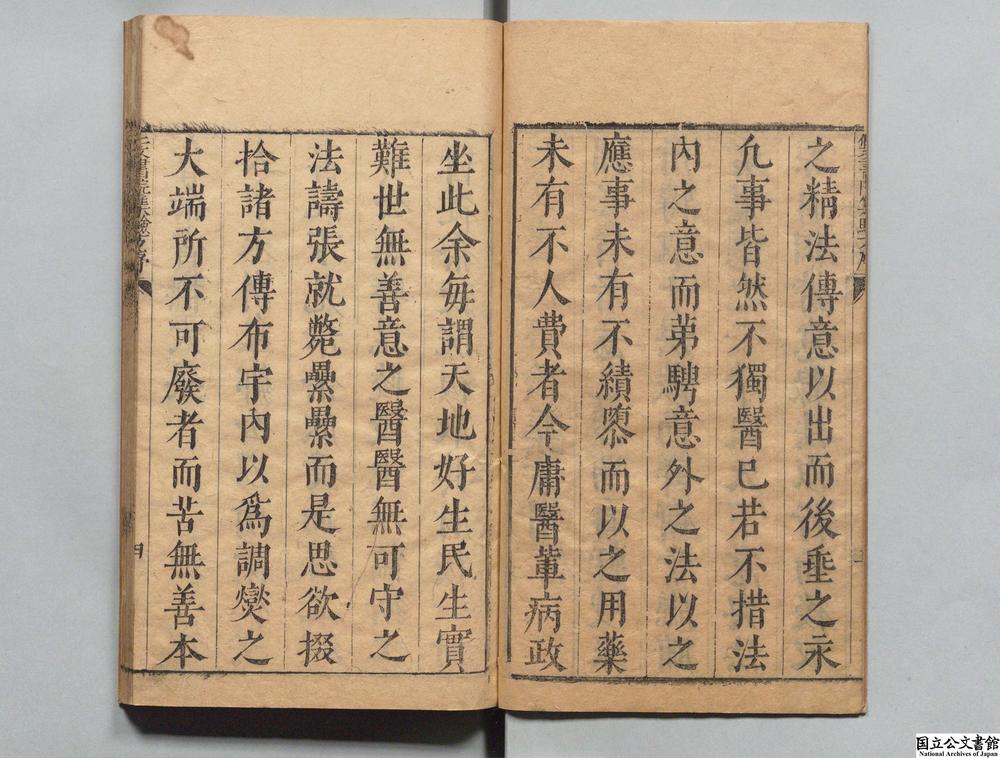 之精法傳意以出而後垂之永
凢事皆然不獨醫已若不措法
內之意而第騁意外之法以之
應事未有不績隳而以之用藥
未有不人費者今庸醫輩病政
坐此余每謂天地好生民生實
難世無善意之醫醫無可守之
法譸張就斃纍纍而是思欲掇
拾諸方傳布宇內以爲調爕之
大端所不可廢者而苦無善本
文書院集驗方序
四
国立公文書館
National Archives of Japan